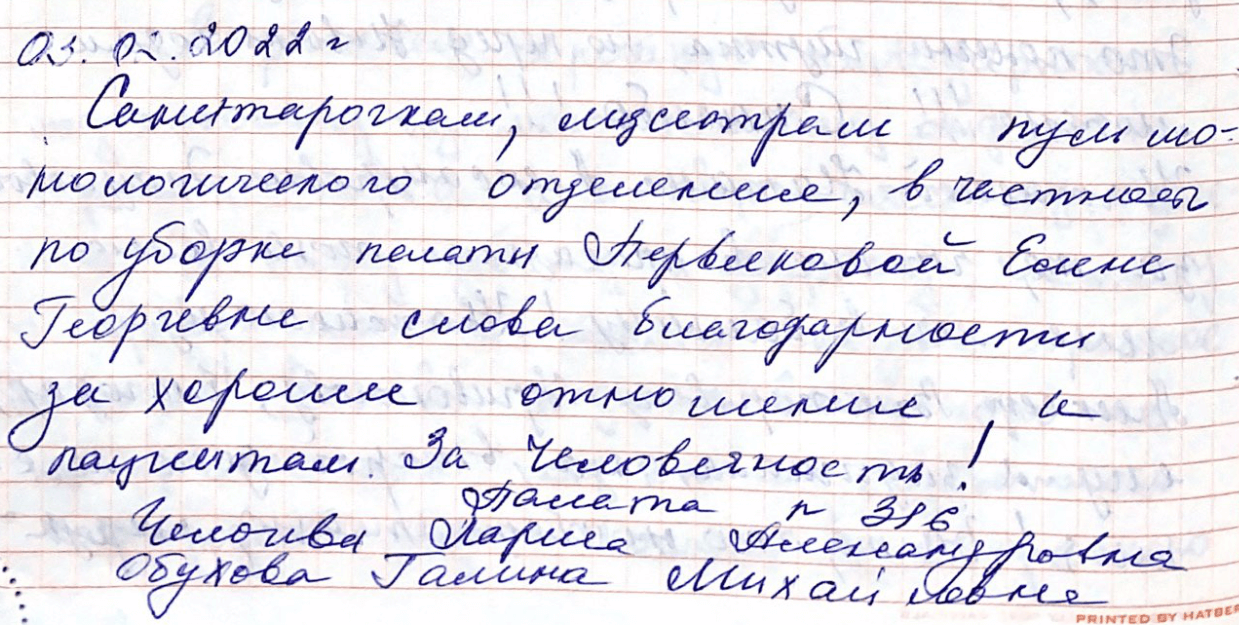 03.02.2022 г
Санитарочкам, медсестрам пульмо-
нологического отделение, в частности
по уборке палаты Первяковой Елене
Георгевне слова благодарности
за хорошие отношение к
пациентам. За Человечность!
Палата № 316
Лариса Александровна
Обухова Галина Михайловна
PRINTED BY HATBER